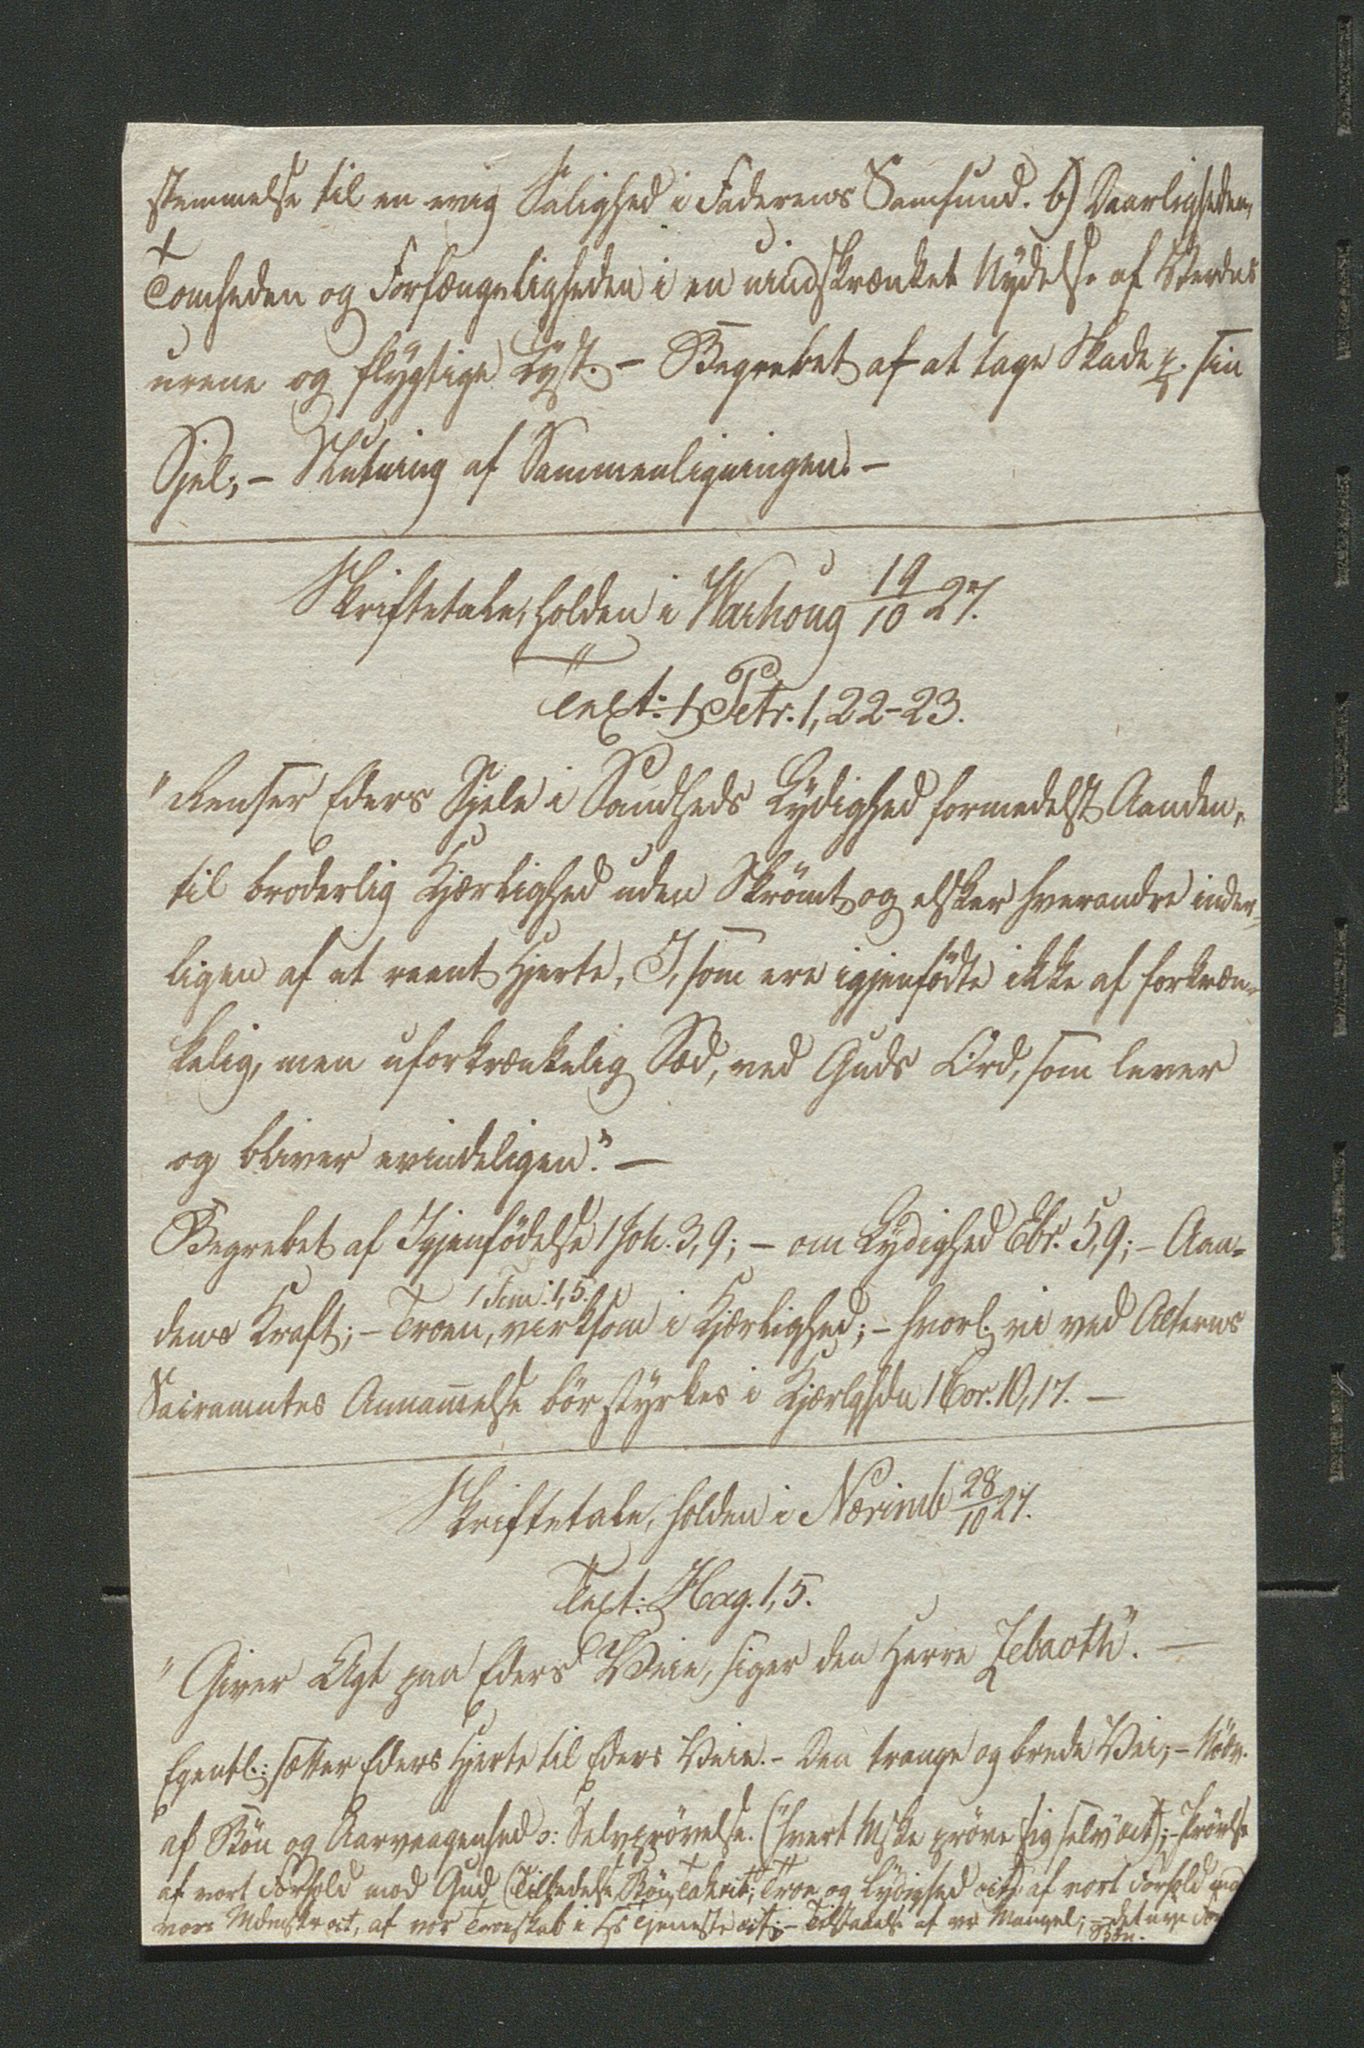 stemmelse til en evig Salighed i Faderens Samfund. b) Daarligheden,
Tomheden og Forfængeligheden i en uindskrænket Nydelse af Verdens
urene og flygtige Lyst. – Begrebet af at tage Skade p. sin
Sjel; – Slutning af Sammenligningen. –
Skriftetale, holden i Warhoug 19/10 27.
Text: 1 Petr. 1, 22-23.
"Renser Eders Sjele i Sandheds Lydighed formedelst Aanden,
til broderlig Kjærlighed uden Skrömt og elsker hverandre inder-
ligen af et reent Hjerte, I, som ere igjenfödte ikke af forkræn-
kelig, men uforkrænkelig Sæd, ved Guds Ord, som lever
og bliver evindeligen." –
Begrebet af Igjenfödelse 1 Joh. 3, 9; – om Lydighed Ebr. 5, 9; – Aan-
1 Tim: 1, 5.
dens Kraft; – Troen, virksom i Kjærlighed; – hvorl. vi ved Alterns
Sacramntes Annammelse bör styrkes i Kjærlghdn 1 Cor. 10, 17. –
Skriftetale, holden i Nærimb 28/10 27.
Text: Hag. 1, 5.
"Giver Agt paa Eders Veie, siger den Herre Zebaoth". –
Egentl.: sætter Eders Hjerte til Eders Veie. – Den trange og brede Vei; – Nödv.
af Bön og Aarvaagenhed ɔ: Selvprövelse. ("hvert Mske pröve sig selv" cit); – Prövlse
af vort Forhold mod Gud (Tilbedelse, Bön, Taknib; Troe og Lydighed cit) af vort Forhold
vore Mdmskr cit, af vor Troeskab i Hs Tjeneste cit; – Tilstaaelse af vr Mangel; – det nye
Bön.